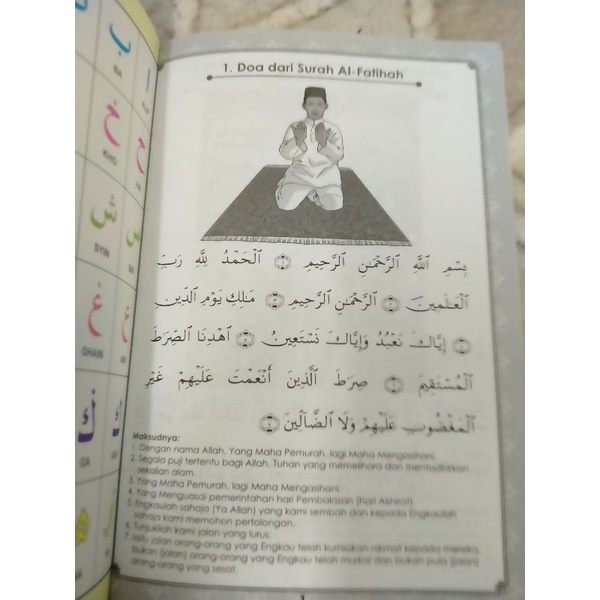 1. Doa dari Surah Al-Fatihah
بِسْمِ ٱللَّهِ ٱلرَّحْمَٰنِ ٱلرَّحِيمِ ۝١ ٱلْحَمْدُ لِلَّهِ رَبِّ
ٱلْعَٰلَمِينَ ۝٢ ٱلرَّحْمَٰنِ ٱلرَّحِيمِ ۝٣ مَٰلِكِ يَوْمِ ٱلدِّينِ
۝٤ إِيَّاكَ نَعْبُدُ وَإِيَّاكَ نَسْتَعِينُ ۝٥ ٱهْدِنَا ٱلصِّرَٰطَ
ٱلْمُسْتَقِيمَ ۝٦ صِرَٰطَ ٱلَّذِينَ أَنْعَمْتَ عَلَيْهِمْ غَيْرِ
ٱلْمَغْضُوبِ عَلَيْهِمْ وَلَا ٱلضَّآلِّينَ ۝٧
Maksudnya:
1. Dengan nama Allah, Yang Maha Pemurah, lagi Maha Mengasihani.
2. Segala puji tertentu bagi Allah, Tuhan yang memelihara dan mentadbirkan
sekalian alam.
3. Yang Maha Pemurah, lagi Maha Mengasihani.
4. Yang Menguasai pemerintahan hari Pembalasan (hari Akhirat).
5. Engkaulah sahaja (Ya Allah) yang kami sembah dan kepada Engkaulah
sahaja kami memohon pertolongan.
6. Tunjukilah kami jalan yang lurus.
7. Iaitu jalan orang-orang yang Engkau telah kurniakan nikmat kepada mereka,
bukan (jalan) orang-orang yang Engkau telah murkai dan bukan pula (jalan)
orang-orang yang sesat.
ب
BA
خ
KHO
ش
SYIN
غ
GHAIN